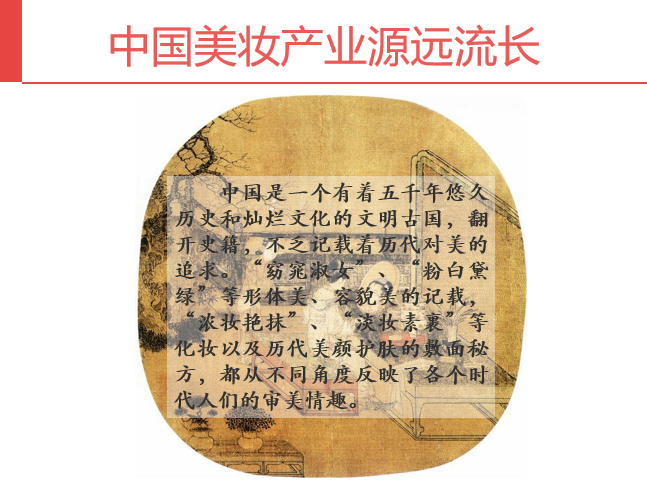 中国美妆产业源远流长
中国是一个有着五千年悠久
历史和灿烂文化的文明古国，翻
开史籍，不乏记载着历代对美的
追求。“窈窕淑女”、“粉白黛
绿”等形体美、容貌美的记载，
“浓妆艳抹”、“淡妆素裹”等
化妆以及历代美颜护肤的敷面秘
方，都从不同角度反映了各个时
代人们的审美情趣。